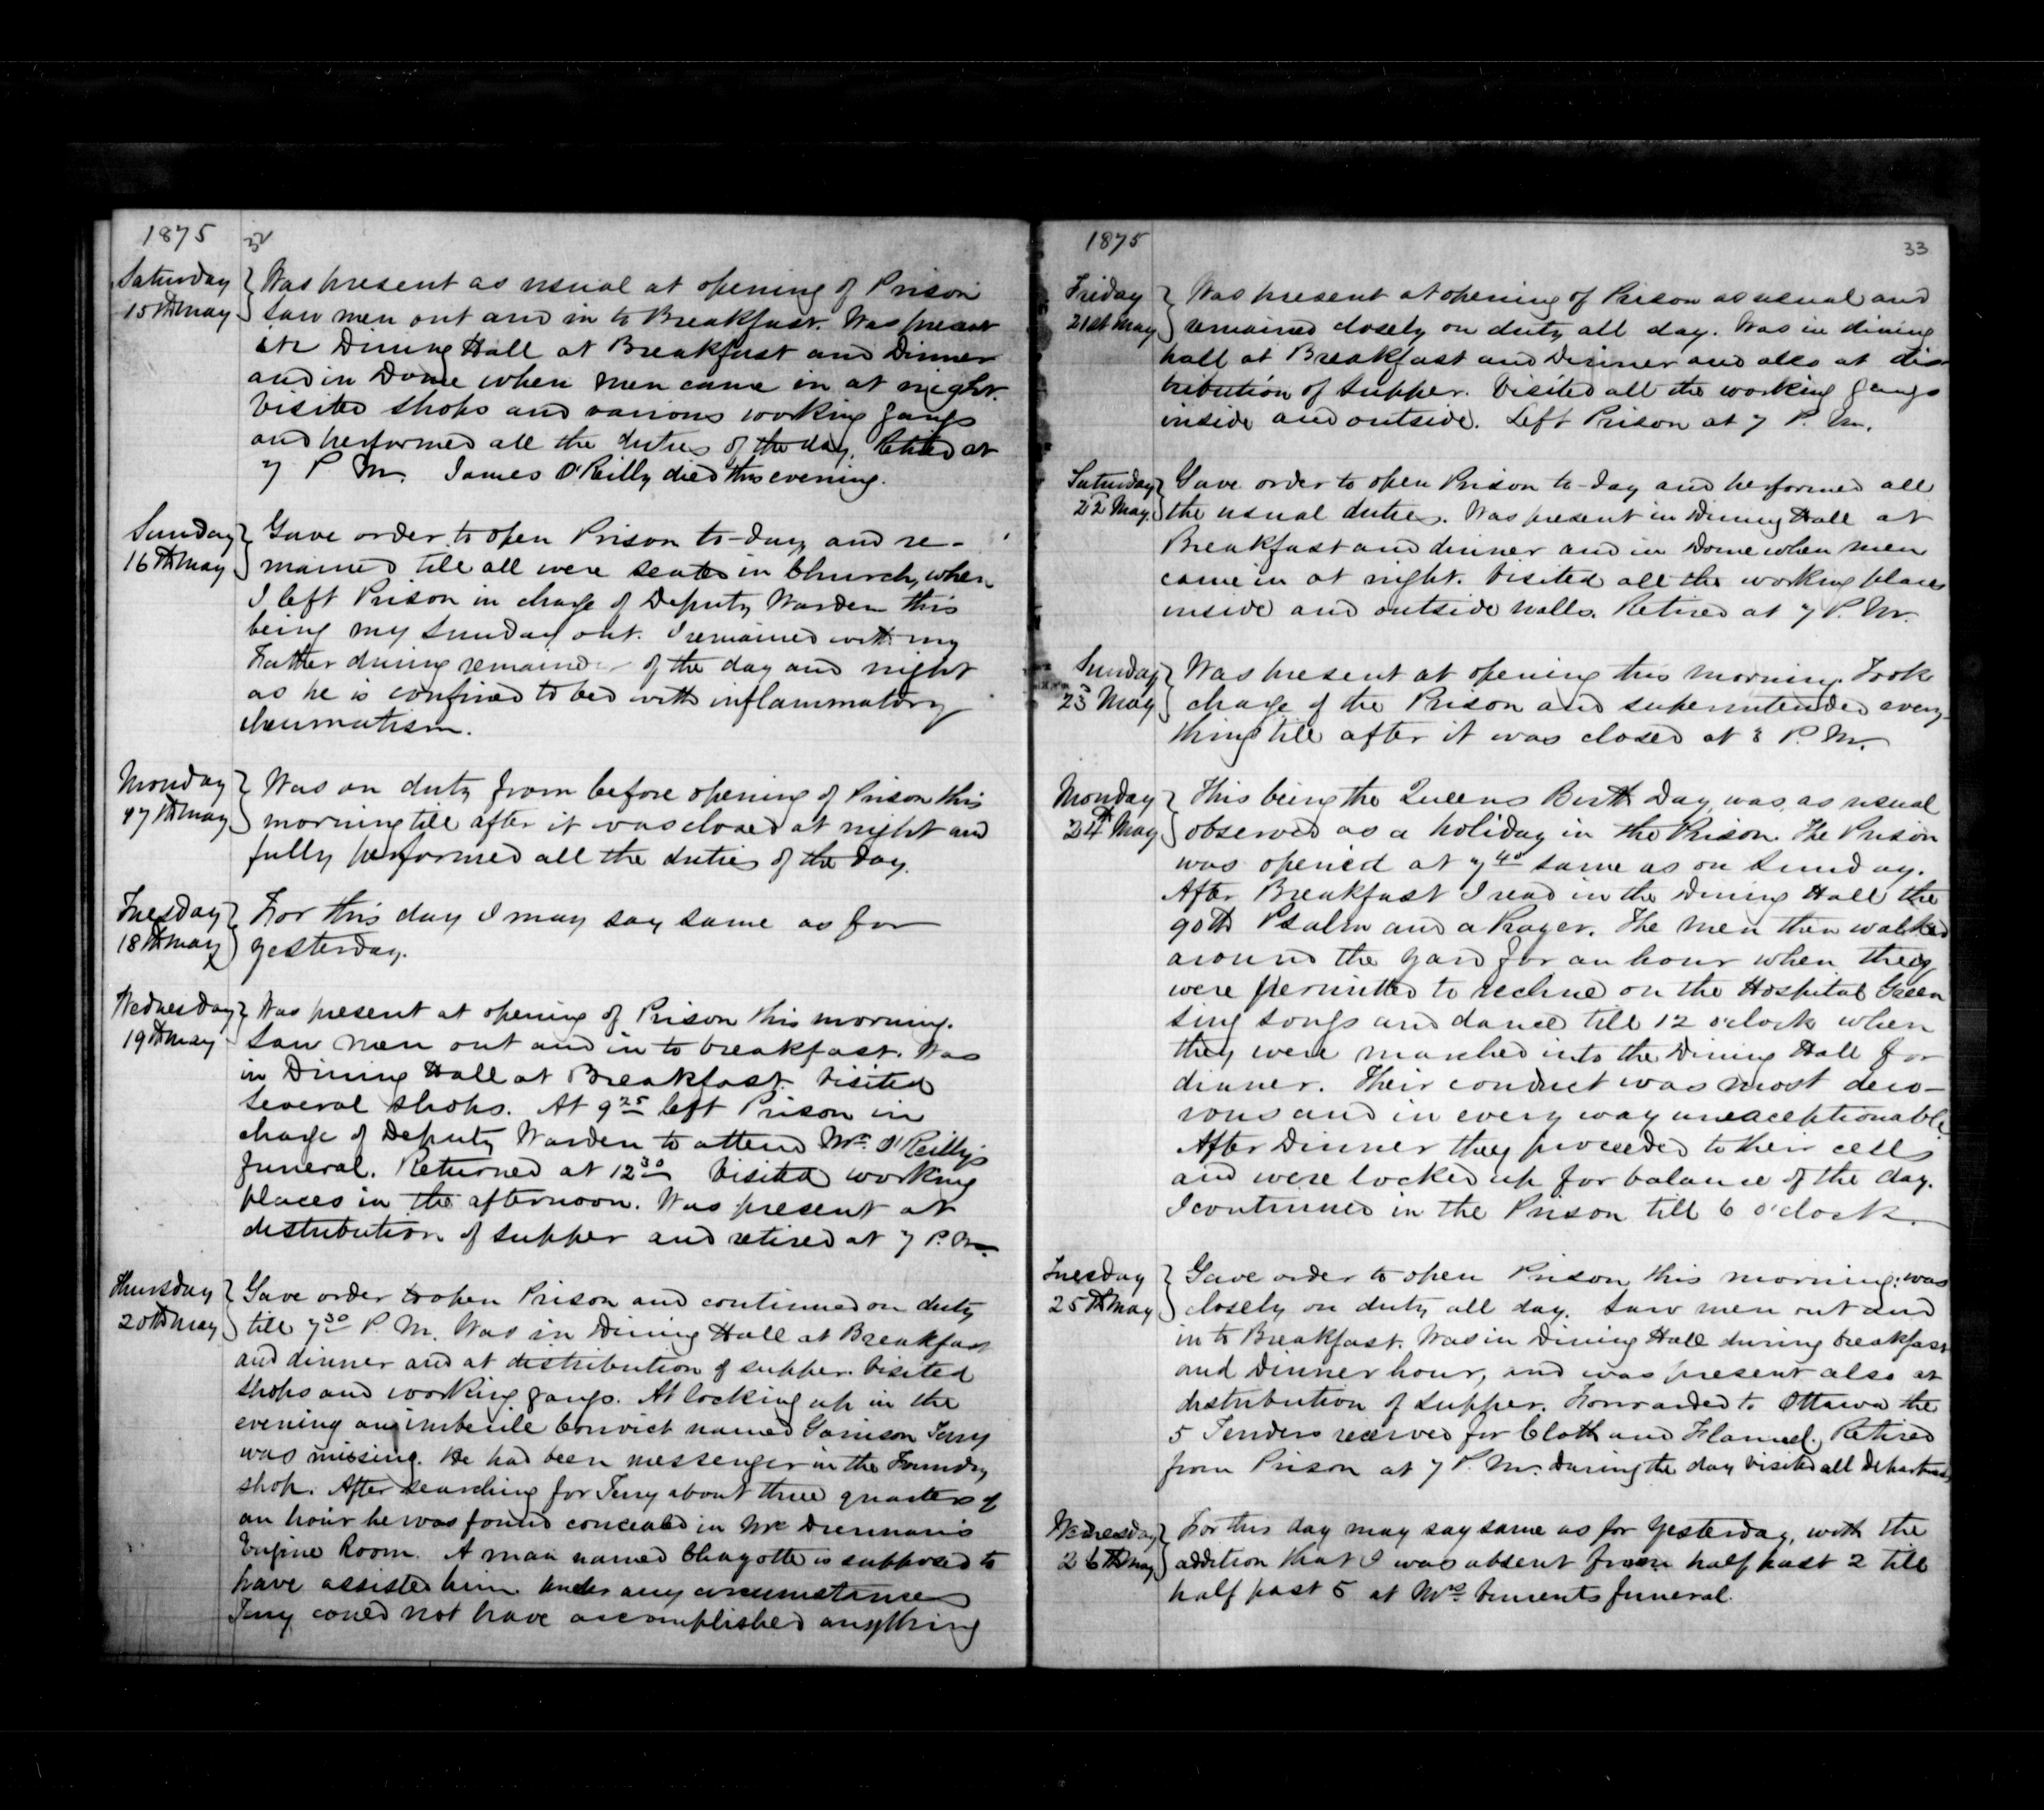 1875 32
Saturday Was present as usual at opening of Prison
15th May Saw men out and in to Breakfast. Was present
in Dining Hall at Breakfast and Dinner
and in Dome when men came in at night.
Visited shops and various working gangs
and performed all the duties of the day. Retired at
7 P. M. James O'Reilly died this evening.
Sunday Gave order to open Prison to-day and re-
16th May mained till all were seated in Church, when
I left Prison in charge of Deputy Warden this
being my Sunday out. I remained with my
Father during remainder of the day and night
as he is confined to bed with inflammatory
rheumatism.
Monday Was on duty from before opening of Prison this
17th May morning till after it was closed at night and
fully performed all the duties of the day.
Tuesday For this day I may say same as for
18th May yesterday.
Wednesday Was present at opening of Prison this morning.
19th May Saw men out and in to breakfast. Was
in Dining Hall at Breakfast. Visited
several shops. At 9 25 left Prison in
charge of Deputy Warden to attend Mr. O'Reilly's
funeral. Returned at 12 30 Visited working
places in the afternoon. Was present at
distribution of supper and retired at 7 P. M.
Thursday Gave order to open Prison and continued on duty
20th May till 7 30 P. M. Was in Dining Hall at Breakfast
and dinner and at distribution of supper. Visited
shops and working gangs. At locking up in the
evening an imbecile Convict named Garrison Terry
was missing. He had been messenger in the Foundry
shop. After searching for Terry about three quarters of
an hour he was found concealed in Mr Drennan's
Engine Room. A man named Chayotte is supposed to
have assisted him. Under any circumstances
Terry could not have accomplished anything
1875 33
Friday Was present at opening of Prison as usual and
21st May remained closely on duty all day. Was in dining
hall at Breakfast and Dinner and also at dis-
tribution of supper. Visited all the working gangs
inside and outside. Left Prison at 7 P. M.
Saturday Gave order to open Prison to-day and performed all
22 May the usual duties. Was present in Dining Hall at
Breakfast and dinner and in Dome when men
came in at night. Visited all the working places
inside and outside walls. Retired at 7 P. M.
Sunday Was present at opening this morning. Took
23 May charge of the Prison and superintended every-
thing till after it was closed at 3 P. M.
Monday This being the Queens Birth Day was, as usual
24th May observed as a holiday in the Prison. The Prison
was opened at 7 40 same as on Sunday.
After Breakfast I read in the Dining Hall the
90th Psalm and a Prayer. The men then walked
around the yard for an hour when they
were permitted to recline on the Hospital Green
sing songs and dance till 12 o'clock when
they were marched into the Dining Hall for
dinner. Their conduct was most deco-
rous and in every way unexceptionable
After Dinner they proceeded to their cells
and were locked up for balance of the day.
I continued in the Prison till 6 o'clock.
Tuesday Gave order to open Prison this morning: was
25th May closely on duty all day. Saw men out and
in to Breakfast. Was in Dining Hall during breakfast
and Dinner hour, and was present also at
distribution of supper. Forwarded to Ottawa the
5 Tenders received for Cloth and Flannel. Retired
from Prison at 7 P. M. During the day visited all Departments
Wednesday For this day may say same as for yesterday, with the
26th May addition that I was absent from half past 2 till
half past 5 at Mrs funeral.